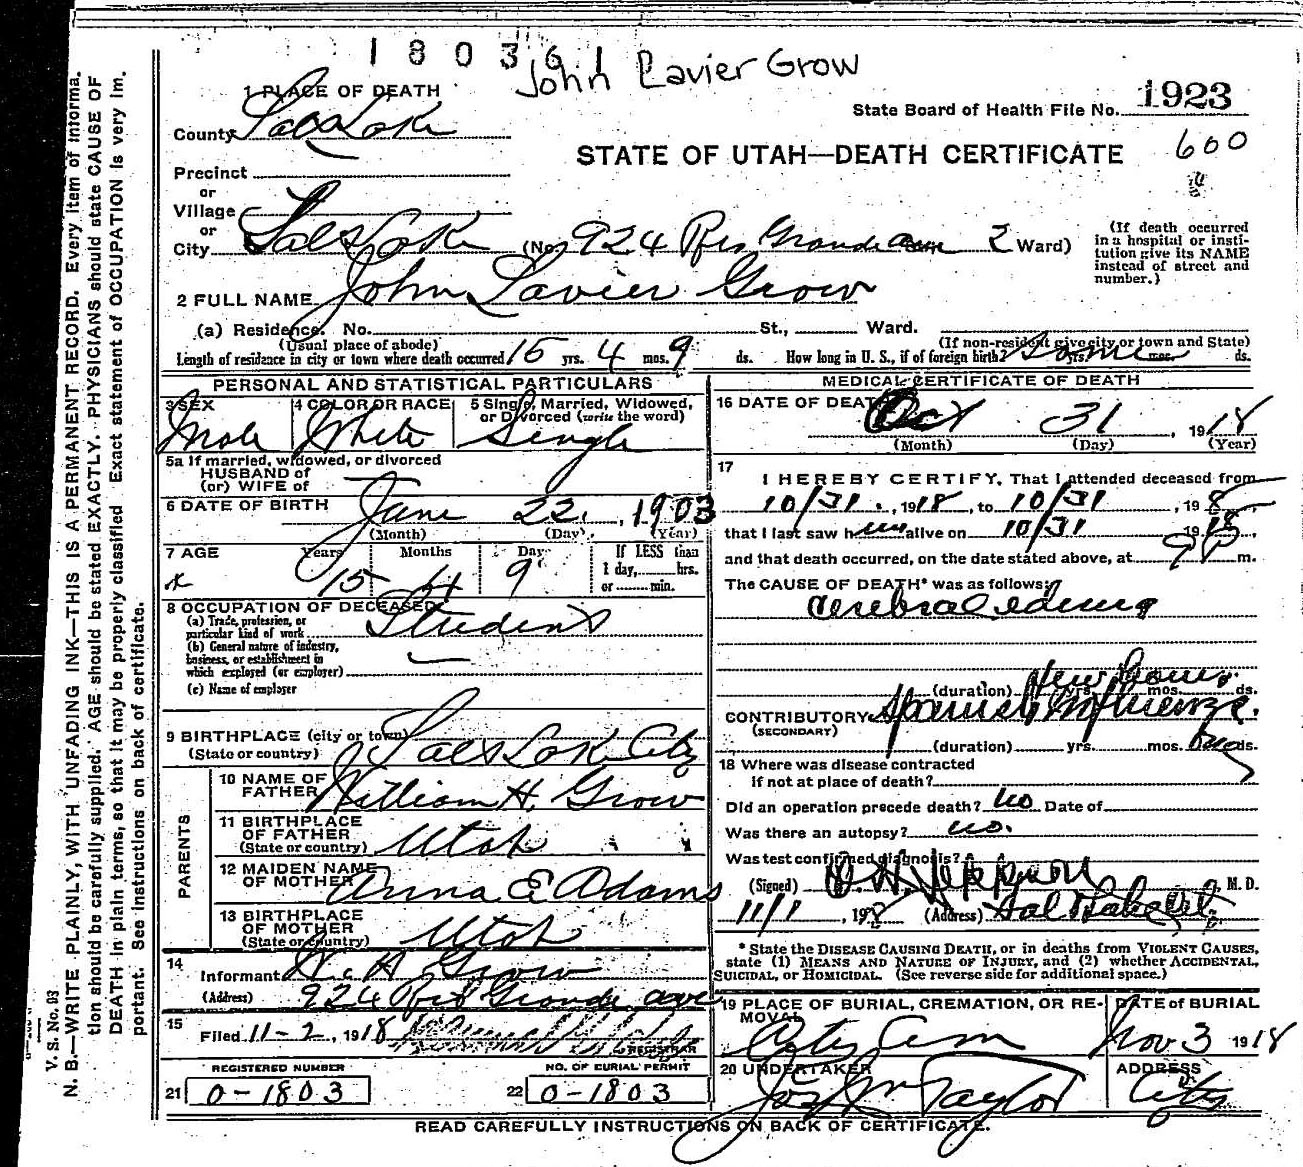 1 8 0 3 6 1
John Lavier Grow
1 PLACE OF DEATH
State Board of Health File No. 1923
County Salt Lake
600
STATE OF UTAH—DEATH CERTIFICATE
Precinct
or
Village
or
City Salt Lake (No. 924 Rio Grande ave 2 Ward)
(If death occurred in a hospital or insti-
tution give its NAME
instead of street and
number.)
2 FULL NAME John Lavier Grow
(a) Residence. No. St., Ward.
(Usual place of abode) (If non-resident give city or town and State)
Length of residence in city or town where death occurred 15 yrs. 4 mos. 9 ds. How long in U. S., if of foreign birth? yrs. mos. ds.
PERSONAL AND STATISTICAL PARTICULARS
3 SEX Male
4 COLOR OR RACE White
5 Single, Married, Widowed,
or Divorced (write the word) Single
5a If married, widowed, or divorced
HUSBAND of
(or) WIFE of
6 DATE OF BIRTH June 22, 1903
(Month) (Day) (Year)
7 AGE Years Months Days If LESS than
15 4 9 1 day, hrs.
or min.
8 OCCUPATION OF DECEASED
(a) Trade, profession, or
particular kind of work Student
(b) General nature of industry,
business, or establishment in
which employed (or employer)
(c) Name of employer
9 BIRTHPLACE (city or town) Salt Lake City
(State or country)
PARENTS
10 NAME OF
FATHER William H. Grow
11 BIRTHPLACE
OF FATHER
(State or country) Utah
12 MAIDEN NAME
OF MOTHER Anna E Adams
13 BIRTHPLACE
OF MOTHER
(State or country) Utah
14
Informant W. H. Grow
(Address) 924 Rio Grande ave
15
Filed 11-2, 1918
REGISTRAR
REGISTERED NUMBER
21 0-1803
NO. OF BURIAL PERMIT
22 0-1803
MEDICAL CERTIFICATE OF DEATH
16 DATE OF DEATH
Oct 31, 1918
(Month) (Day) (Year)
17
I HEREBY CERTIFY, That I attended deceased from
10/31, 1918, to 10/31, 1918
that I last saw him alive on 10/31 1918,
and that death occurred, on the date stated above, at 9 P m.
The CAUSE OF DEATH* was as follows:
Cerebral edema
(duration) few hours yrs. mos. ds.
CONTRIBUTORY Spanish Influenza.
(SECONDARY)
(duration) yrs. mos. ds.
18 Where was disease contracted
if not at place of death?
Did an operation precede death? no Date of
Was there an autopsy? no.
Was test confirmed diagnosis?
(Signed) M. D.
11/1, 1918 (Address)
* State the DISEASE CAUSING DEATH, or in deaths from VIOLENT CAUSES,
state (1) MEANS AND NATURE OF INJURY, and (2) whether ACCIDENTAL,
SUICIDAL, or HOMICIDAL. (See reverse side for additional space.)
19 PLACE OF BURIAL, CREMATION, OR RE-
MOVAL City Cem
DATE of BURIAL
Nov 3 1918
20 UNDERTAKER
Jos Wm Taylor
ADDRESS
City
READ CAREFULLY INSTRUCTIONS ON BACK OF CERTIFICATE.
V. S. No. 93
N. B.—WRITE PLAINLY, WITH UNFADING INK—THIS IS A PERMANENT RECORD. Every item of informa-
tion should be carefully supplied. AGE should be stated EXACTLY. PHYSICIANS should state CAUSE OF
DEATH in plain terms, so that it may be properly classified. Exact statement of OCCUPATION is very im-
portant. See instructions on back of certificate.